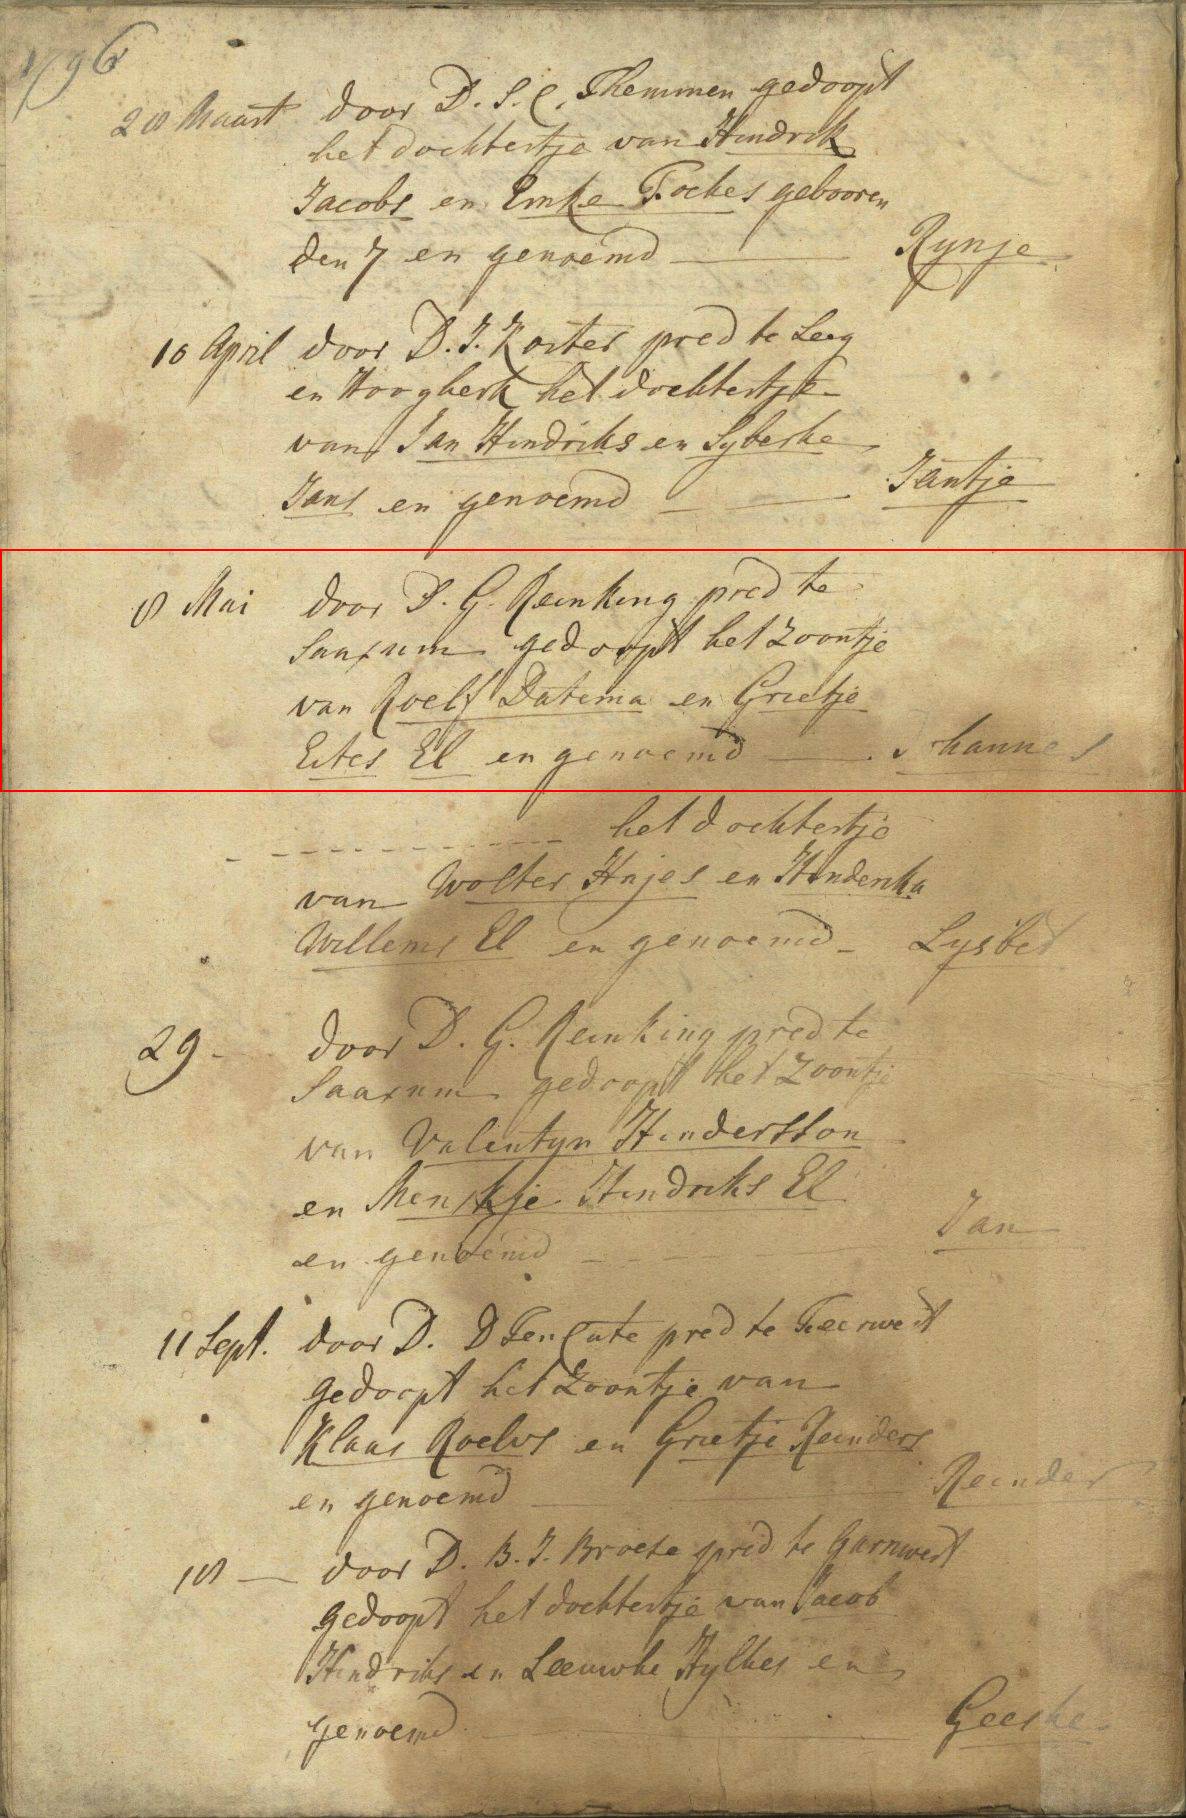 1796
28 Maart door D. S. C. Themmen gedoopt
het dochtertje van Hindrik
Jacobs en Emke Fockes gebooren
den 7 en genoemd Rynje
10 April door D. J. Koster pred te Leeg
en Hoogkerk het dochtertje
van Jan Hindriks en Syberke
Jans en genoemd Jantje
8 Mai door D. G. Reinking pred te
Saaxum gedoopt het Zoontje
van Roelf Datema en Grietje
Eites El en genoemd Johannes
het dochtertje
van Wolter Hajes en Hindrika
Willems El en genoemd Lysbet
29 door D. G. Reinking pred te
Saaxum gedoopt het Zoontje
van Valentyn Hindersson
en Menskje Hindriks El
en genoemd Jan
11 Sept. door D. D Ten Cate pred te Feerwert
gedoopt het Zoontje van
Klaas Roelvs en Grietje Reinders
en genoemd Reinder
18 door D. B. J. Broese pred te Garnwert
gedoopt het dochtertje van Jacob
Hindriks en Leeuwke Hylkes en
genoemd Geeske